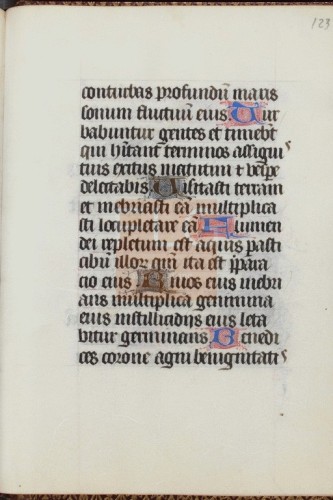 123
conturbas profundū maris
sonum fluctuū eius Tur
babuntur gentes et timebt
qui hitant terminos a signi
tuis exitus matutini t vespe
delectabis Uisitasti terram
et inebriasti eā multiplica
sti locupletare eā Flumen
dei repletum est aquis parasti
cibū illor qm̄ ita est ꝑpara
cio eius Riuos eius inebri
ans multiplica genimina
eius in stillicidijs eius leta
bitur germinans Benedi
ces corone anni benignitatis